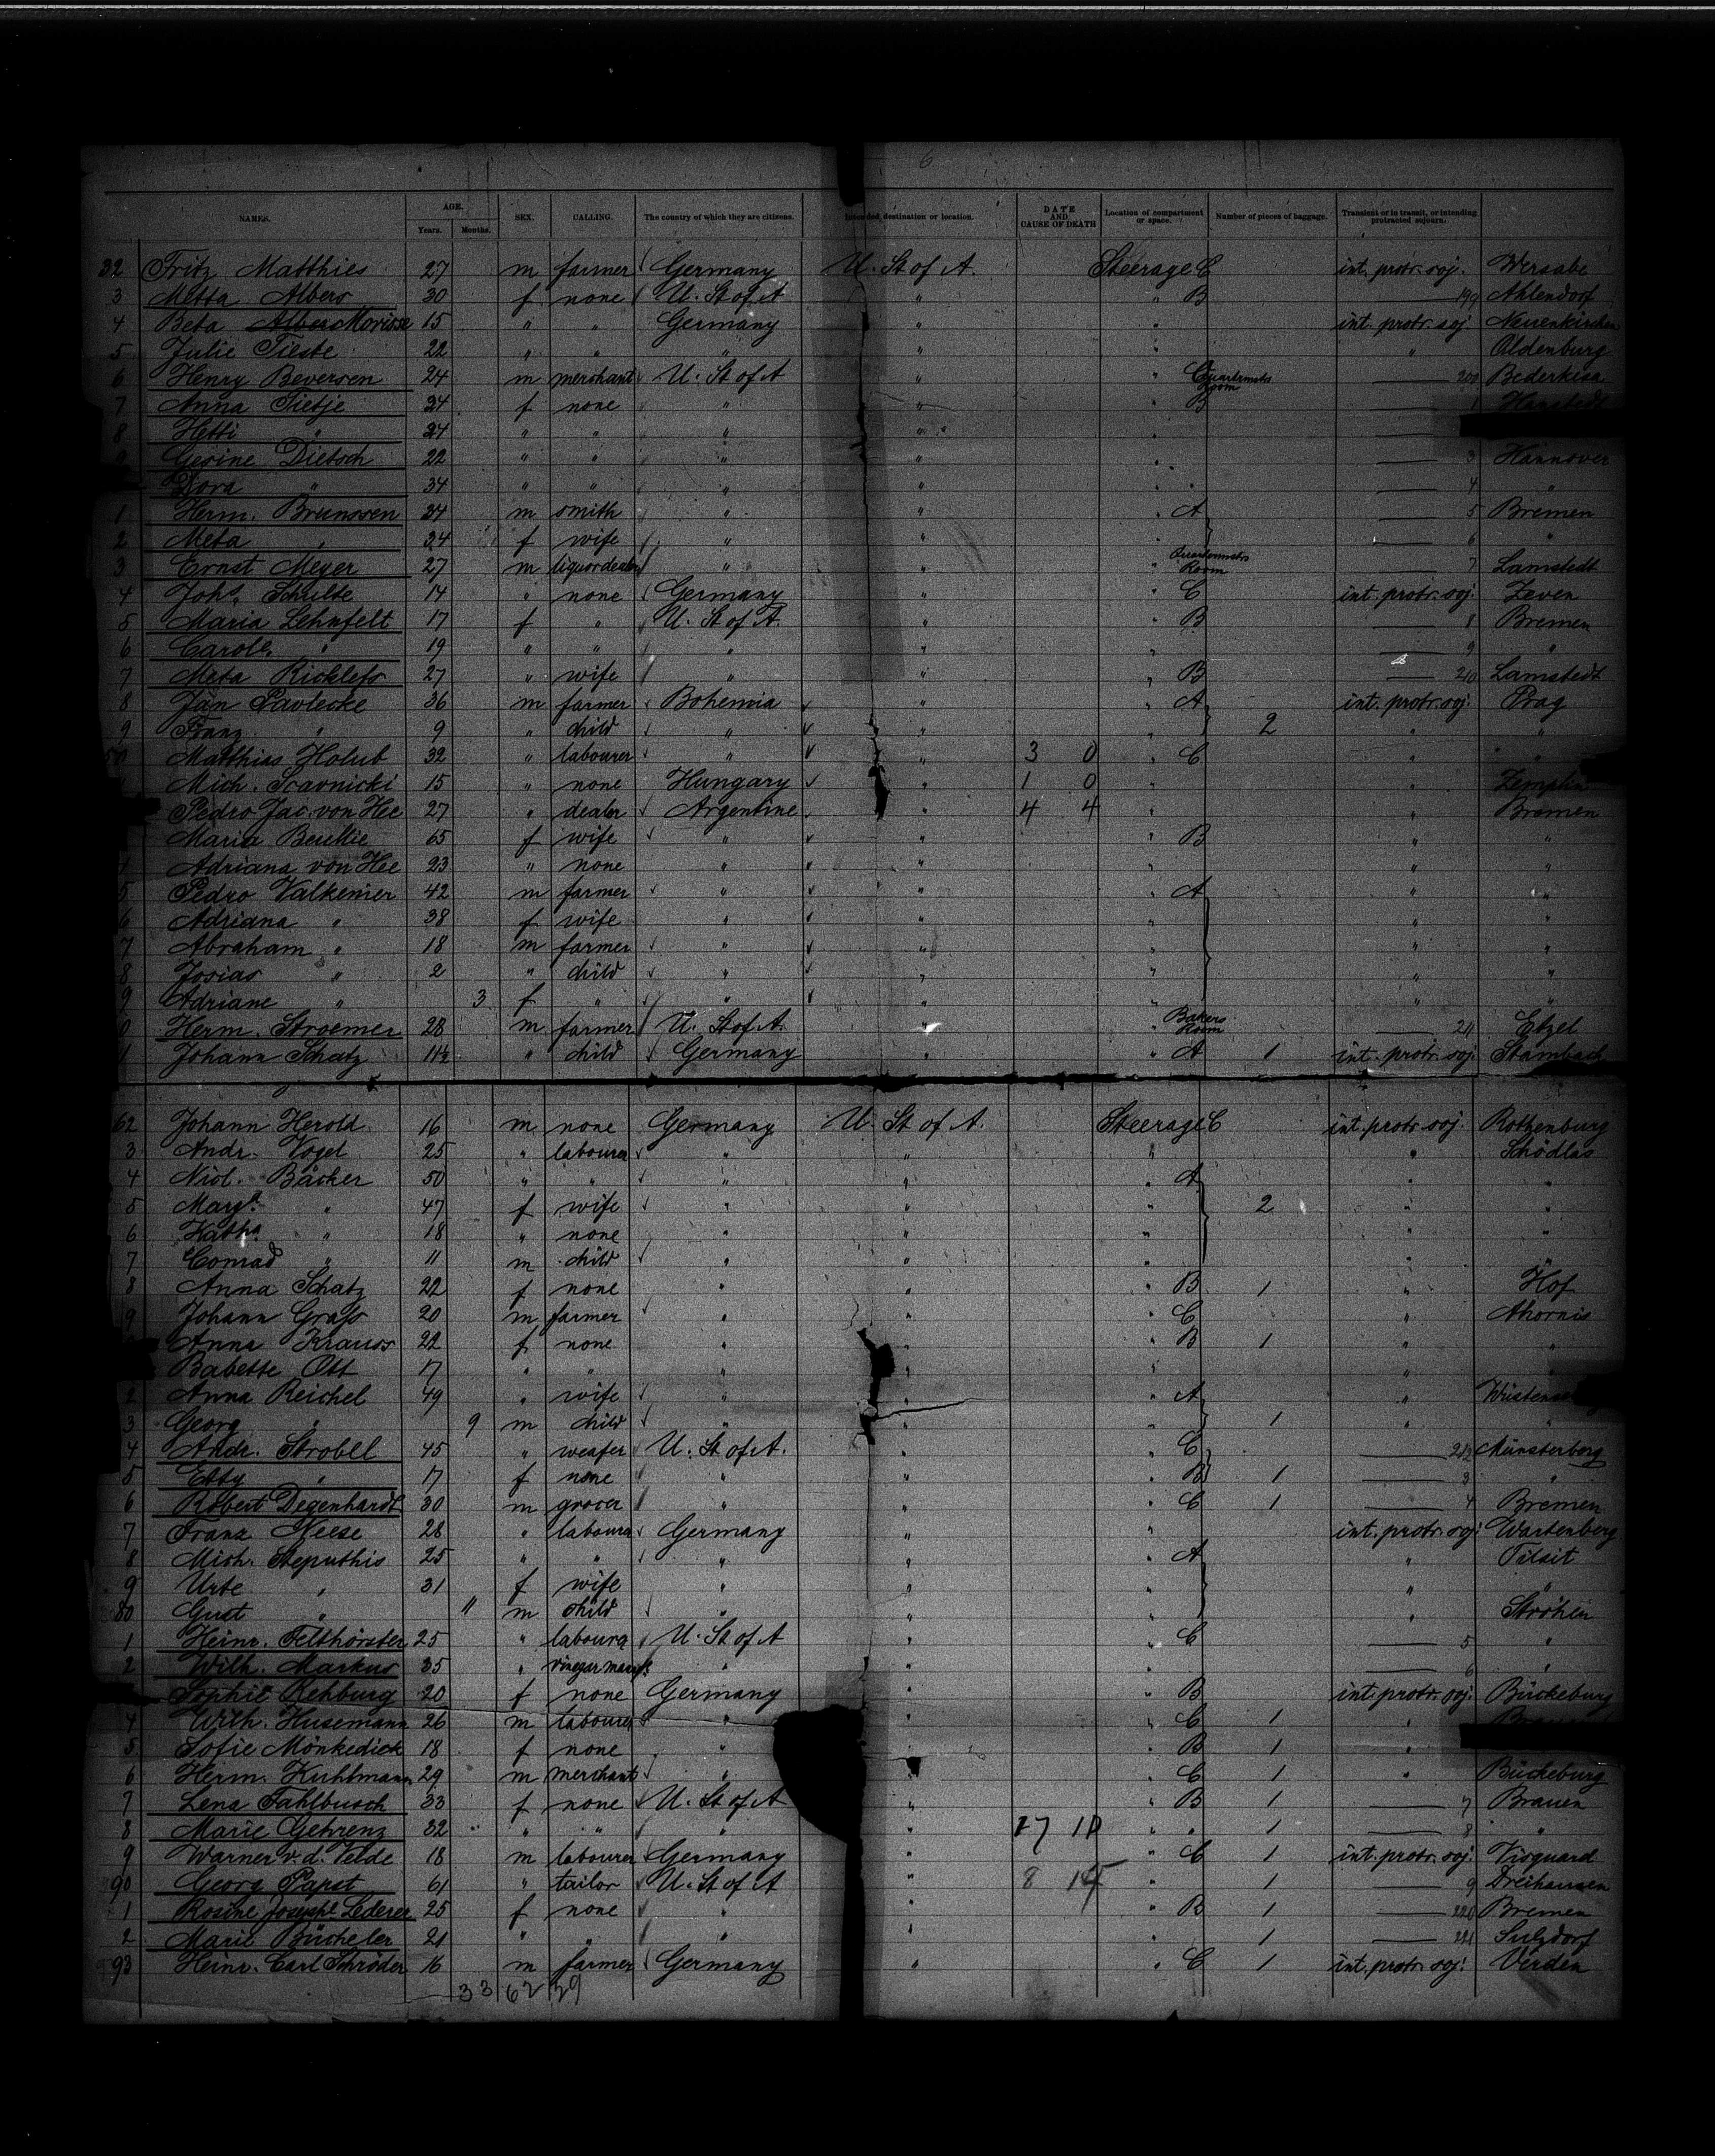 6
NAMES. AGE. SEX. CALLING. The country of which they are citizens. Intended destination or location. DATE AND CAUSE OF DEATH Location of compartment or space. Number of pieces of baggage. Transient or in transit, or intending protracted sojourn.
Years. Months.
32 Fritz Matthies 27 m farmer Germany U. St of A. Steerage C int. protr. soj. Wersabe
3 Metta Albers 30 f none U. St of A " " B 199 Ahlendorf
4 Beta Albers Morisse 15 " " Germany " " int. protr. soj Neuenkirchen
5 Julie Tieste 22 " " " " " " Oldenburg
6 Henry Beversen 24 m merchant U. St of A " " Room 200 Bederkesa
7 Anna Tietje 24 f none " " " B 1 Hanstedt
8 Hetti " 24 " " " " "
Gesine Dietsch 22 " " " " " 3 Hannover
Dora " 34 " " " " " 4 "
1 Herm. Brunssen 34 m smith " " " A 5 Bremen
2 Meta " 34 f wife " " " 6 "
3 Ernst Meyer 27 m liquordealer " " " Room 7 Lamstedt
4 Joh. Schulte 14 " none Germany " " C int. protr. soj. Zeven
5 Maria Lehnfelt 17 f " U. St of A. " " B 8 Bremen
6 Carol. " 19 " " " " " 9 "
7 Meta Ricklefs 27 " wife " " " B 210 Lamstedt
8 Jan Pavlecke 36 m farmer Bohemia " " A int. protr. soj. Prag
9 Franz " 9 " child " " " 2 " "
50 Matthias Holub 32 " labourer " " 3 0 " C " "
Mich. Scavnicki 15 " none Hungary " 1 0 " " Zemplin
Pedro Jac. von Hee 27 " dealer Argentine " 4 4 " " Bremen
Maria 65 f wife " " " B " "
Adriana von Hee 23 " none " " " " "
5 Pedro Valkenier 42 m farmer " " " A " "
6 Adriana " 38 f wife " " " " "
7 Abraham " 18 m farmer " " " " "
8 Josias " 2 " child " " " " "
9 Adriane " 3 f " " " " " "
0 Herm. Stroemer 28 m farmer U. St of A. " " Bakers Room 211 Etzel
1 Johann Schatz 11½ " child Germany " " A 1 int. protr. soj. Stambach
62 Johann Herold 16 m none Germany U. St of A. Steerage C int. protr. soj. Rothenburg
3 Andr. Vogel 25 " labourer " " " " Schödlas
4 Nicl. Bäcker 50 " " " " " A " "
5 Marg. " 47 f wife " " " 2 " "
6 Kath. " 18 " none " " " " "
7 Conrad " 11 m child " " " "
8 Anna Schatz 22 f none " " " B 1 " Hof
9 Johann Grass 20 m farmer " " " C " Ahornis
Anna Krauss 22 f none " " " B 1 " "
Babette Ott 17 " " " " " " "
2 Anna Reichel 49 " wife " " " A "
3 Georg " 9 m child " " " 1 " "
4 Andr. Strobel 45 " weafer U. St of A. " " C 212 Münsterberg
5 Etty " 17 f none " " " B 1 3 "
6 Robert Degenhardt 30 m grocer " " " C 1 4 Bremen
7 Franz Neese 28 " labourer Germany " " int. protr. soj. Wartenberg
8 Mich. Steputhis 25 " " " " " A " Tilsit
9 Urte " 31 f wife " " " " "
80 Gust " 11 m child " " " " Ströhen
1 Heinr. Felthörster 25 " labourer U. St of A " " C 5 "
2 Wilh. Markus 35 " " " " 6 "
Sophie Rehburg 20 f none Germany " " B int. protr. soj. Bückeburg
4 Wilh. Husemann 26 m labourer " " " C 1 "
5 Sofie Mönkedick 18 f none " " B 1 "
6 Herm. Kuhlmann 29 m merchant " " " C 1 " Bückeburg
7 Lena Fahlbusch 33 f none U. St of A " " B 1 7 Brauen
8 Marie Gehrenz 32 " " " " 17 10 " " 1 8 "
9 Warner v. d. Velde 18 m labourer Germany " " C 1 int. protr. soj. Visquard
90 Georg Papst 61 " tailor U. St of A " 8 " 1 9 Dreihausen
1 Rosine Josephe Lederer 25 f none " " " B 1 220 Bremen
2 Marie Bücheler 21 " " " " " 1 221 Sulzdorf
93 Heinr. Carl Schröder 16 m farmer Germany " " C 1 int. protr. soj. Verden
33 62 29